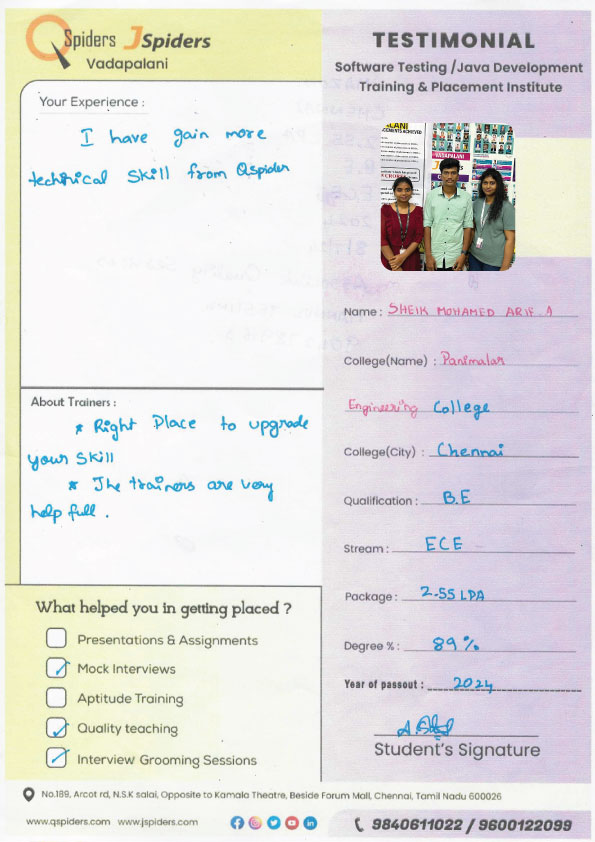 QSpiders JSpiders
Vadapalani
TESTIMONIAL
Software Testing /Java Development
Training & Placement Institute
Your Experience :
I have gain more
technical skill from Qspider
Name : SHEIK MOHAMED ARIF. A
College(Name) : Panimalar
Engineering College
College(City) : Chennai
Qualification : B.E
Stream : ECE
Package : 2.55 LPA
Degree % : 89 %
Year of passout : 2024
Student's Signature
About Trainers :
* Right Place to upgrade
your skill
* The trainers are very
help full .
What helped you in getting placed ?
Presentations & Assignments
Mock Interviews
Aptitude Training
Quality teaching
Interview Grooming Sessions
No.189, Arcot rd, N.S.K salai, Opposite to Kamala Theatre, Beside Forum Mall, Chennai, Tamil Nadu 600026
www.qspiders.com www.jspiders.com
9840611022 / 9600122099